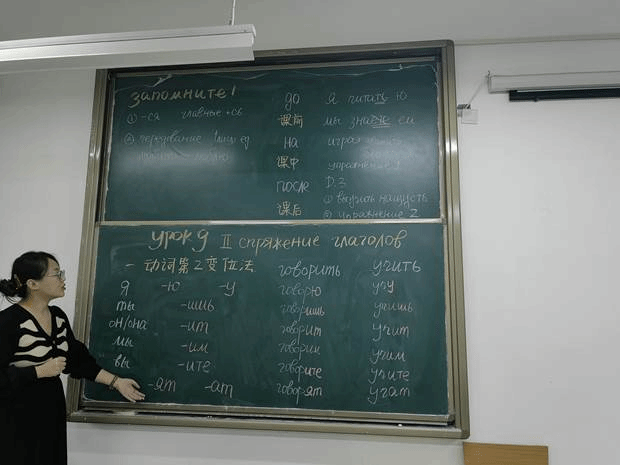 запомните!
① -ся главные +сь
② чередование 1 лиц ед
люблю
до
课前
на
课中
после
课后
я читать ю
мы знаем ем
упражнение 1
D.З
① выучить наизусть
② упражнение 2
Урок 9 II спряжение глаголов
一 动词第2变位法
я -ю -у
ты -ишь
он/она -ит
мы -им
вы -ите
-ят -ат
говорить
говорю
говоришь
говорит
говорим
говорите
говорят
учить
учу
учишь
учит
учим
учите
учат